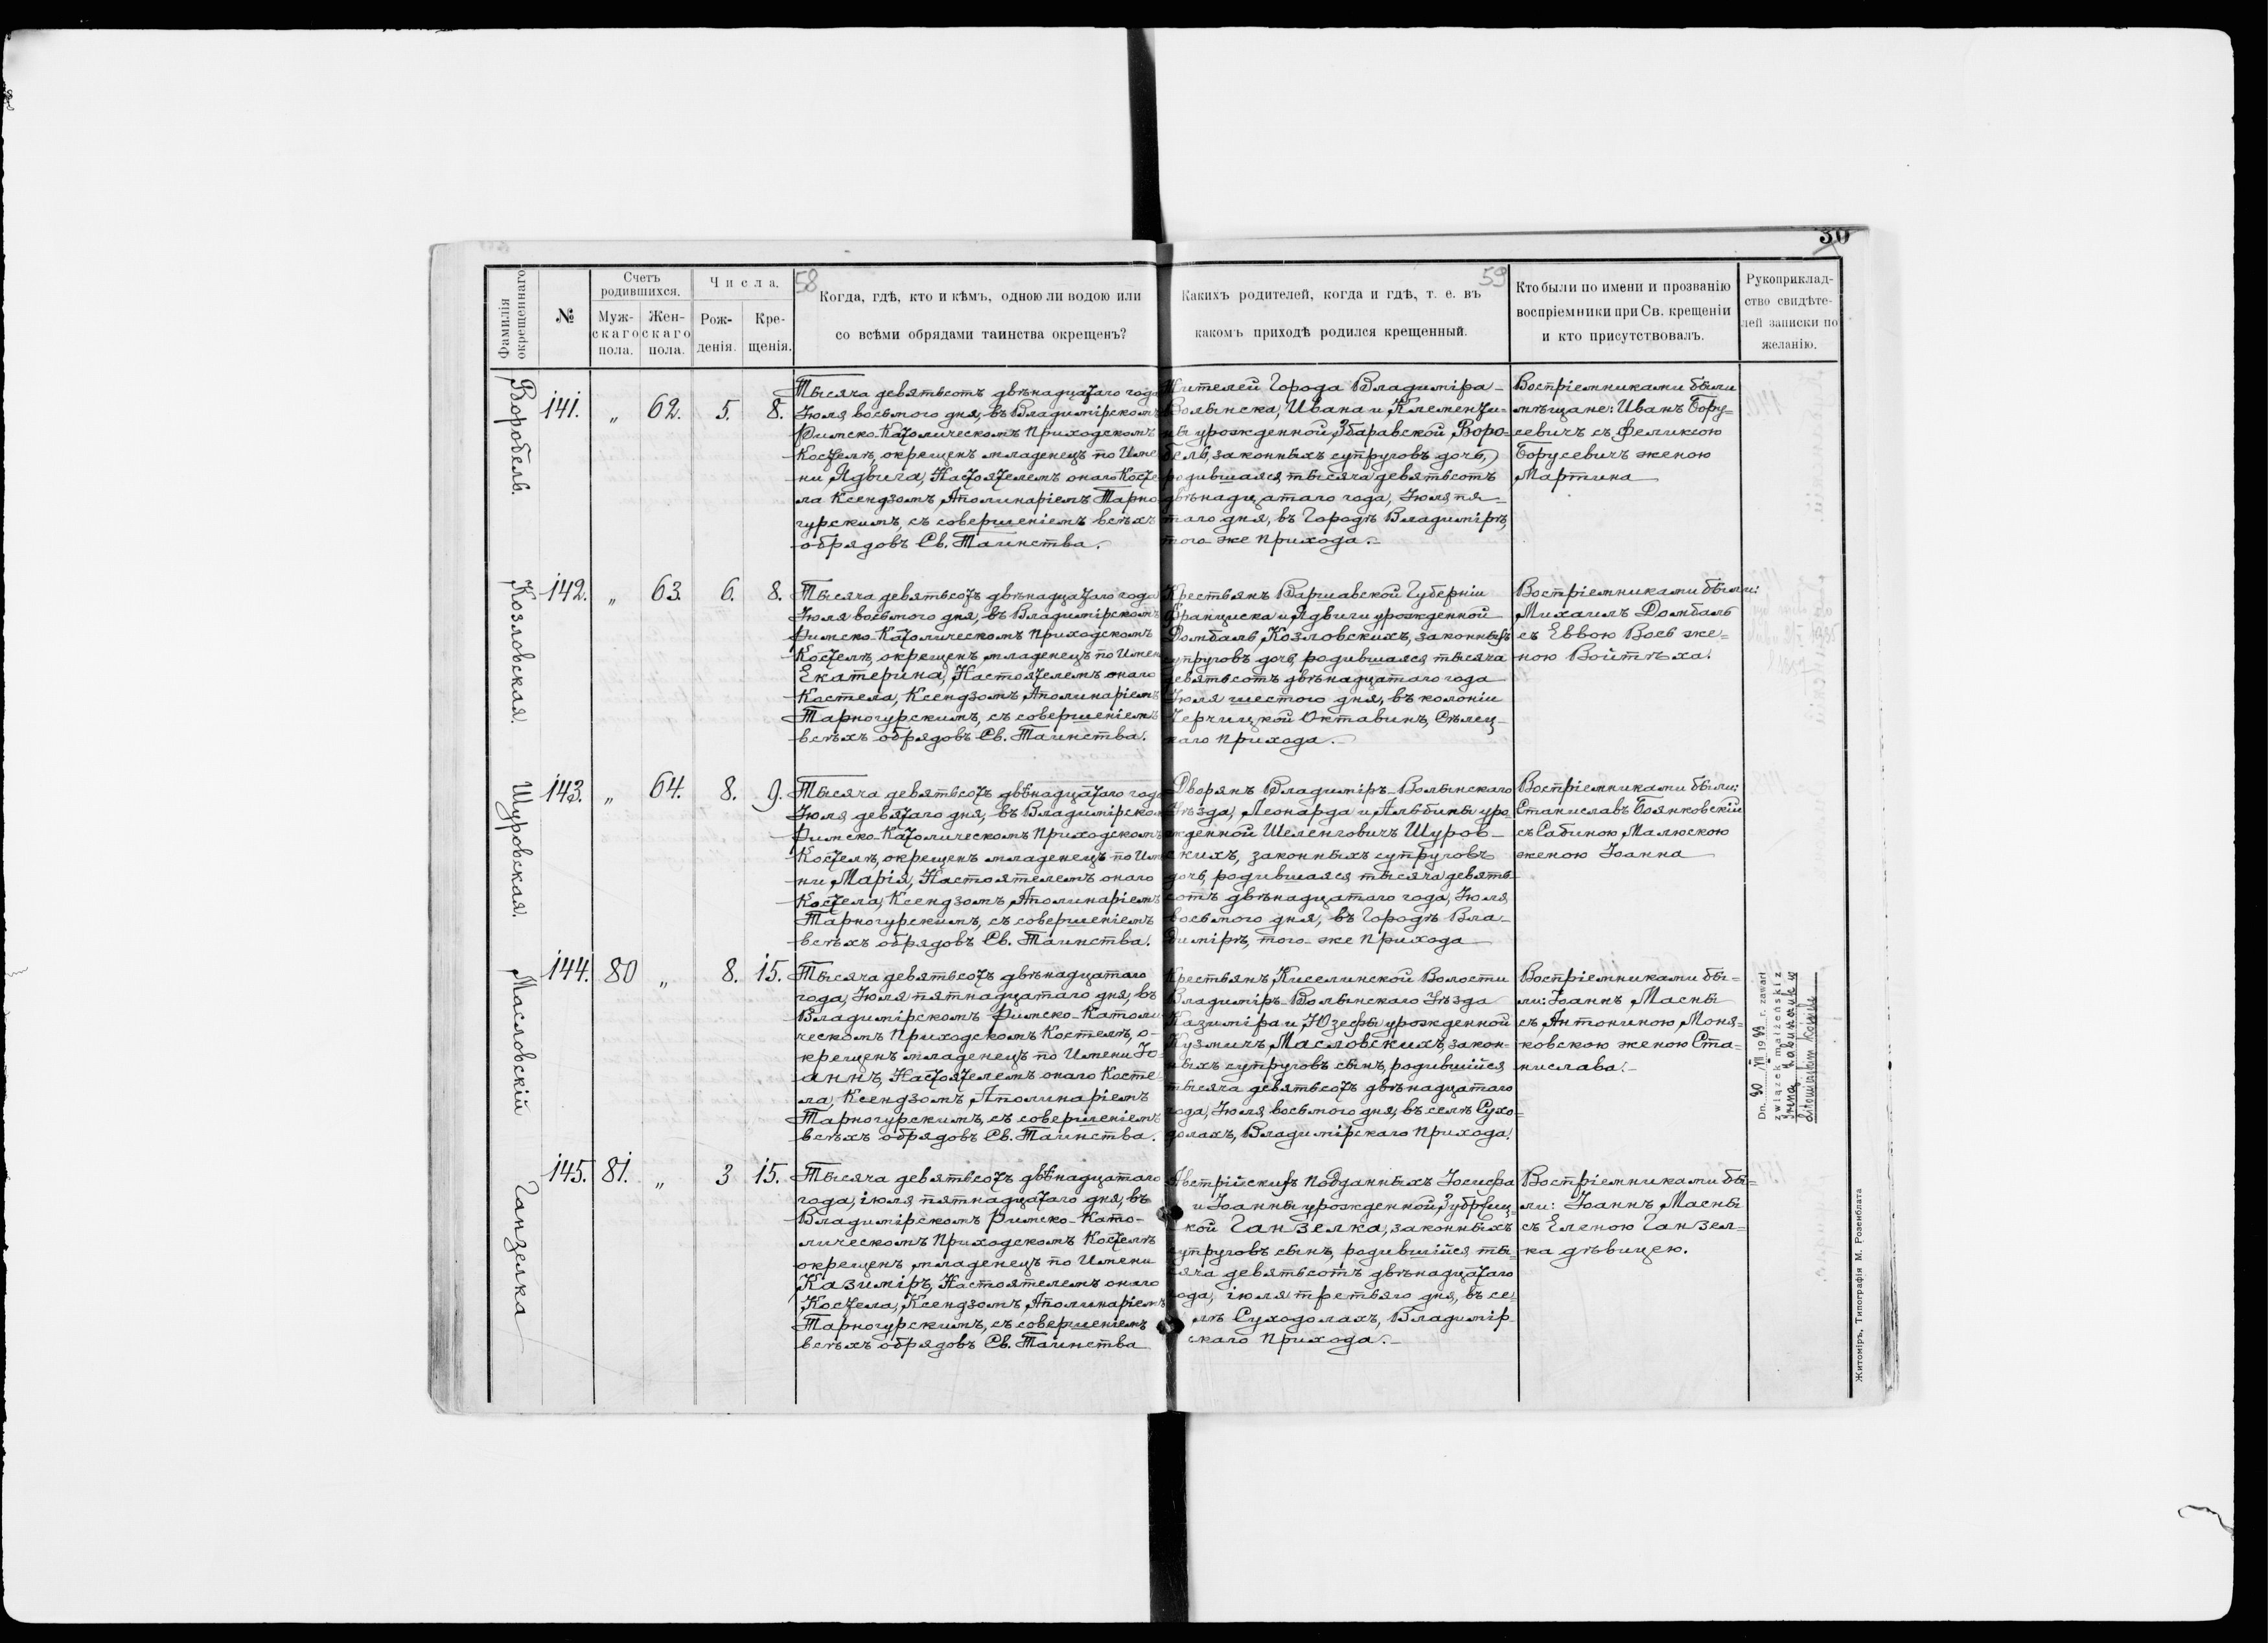 30
58
59
Фамилія
окрещеннаго
№
Счетъ
родившихся.
Муж-
скаго
пола.
Жен-
скаго
пола.
Числа.
Рож-
денія.
Кре-
щенія.
Когда, гдѣ, кто и кѣмъ, одною ли водою или
со всѣми обрядами таинства окрещенъ?
Какихъ родителей, когда и гдѣ, т. е. въ
какомъ приходѣ родился крещенный.
Кто были по имени и прозванію
воспріемники при Св. крещеніи
и кто присутствовалъ.
Рукоприклад-
ство свидѣте-
лей записки по
желанію.
Воробель.
141.
"
62.
5.
8.
Тысяча девятьсотъ двѣнадцатаго года
Іюля восьмого дня, въ Владимірскомъ
Римско-Католическомъ Приходскомъ
Костелѣ, окрещенъ младенецъ по Име
ни Ядвига, Настоятелемъ онаго Косте
ла Ксендзомъ Аполинаріемъ Тарно
гурскимъ, съ совершеніемъ всѣхъ
обрядовъ Св. Таинства.
Жителей Города Владиміра-
Волынска, Ивана и Клементи-
ны урожденной Збаравской, Воро-
бель, законныхъ супруговъ дочь,
родившаяся тысяча девятьсотъ
двѣнадцатаго года, Іюля пя-
таго дня, въ Городѣ Владимірѣ,
того-же прихода.-
Воспріемниками были
мѣщане: Иванъ Бору=
севичъ съ Феликсою
Борусевичъ женою
Мартина
Козловская.
142.
"
63.
6.
8.
Тысяча девятьсотъ двѣнадцатаго года
Іюля восьмого дня, въ Владимірскомъ
Римско-Католическомъ Приходскомъ
Костелѣ, окрещенъ младенецъ по Имен
Екатерина, Настоятелемъ онаго
Костела, Ксендзомъ Аполинаріемъ
Тарногурскимъ, съ совершеніемъ
всѣхъ обрядовъ Св. Таинства.
Крестьянъ Варшавской Губерніи
Франциска и Ядвиги урожденной
Домбаль, Козловскихъ, законныхъ
супруговъ дочь, родившаяся тысяча
девятьсотъ двѣнадцатаго года
Іюля шестого дня, въ колоніи
Черчицкой Октавинъ, Сѣлец-
каго прихода.-
Воспріемниками были:
Михаилъ Домбаль
съ Еввою Воев же=
ною Войтѣха.
Щуровская.
143.
"
64.
8.
9.
Тысяча девятьсотъ двѣнадцатаго года
Іюля девятаго дня, въ Владимірском
Римско-Католическомъ Приходскомъ
Костелѣ, окрещенъ младенецъ по Им
ни Марія, Настоятелемъ онаго
Костела, Ксендзомъ Аполинаріемъ
Тарногурскимъ, съ совершеніемъ
всѣхъ обрядовъ Св. Таинства.
Дворянъ Владиміръ-Волынскаго
Уѣзда, Леонарда и Альбины уро-
жденной Шеленговичъ Щуров-
скихъ, законныхъ супруговъ
дочь, родившаяся тысяча девять
сотъ двѣнадцатаго года, Іюля
восьмого дня, въ Городѣ Вла-
димірѣ, того-же прихода
Воспріемниками были:
Станиславъ Боянковскій
съ Сабиною Малюскою
женою Іоанна
Масловскій
144.
80
"
8.
15.
Тысяча девятьсотъ двѣнадцатаго
года, Іюля пятнадцатаго дня, въ
Владимірскомъ Римско-Католи
ческомъ Приходскомъ Костелѣ, о-
крещенъ младенецъ по Имени Іо
аннъ, Настоятелемъ онаго Косте
ла, Ксендзомъ Аполинаріемъ
Тарногурскимъ, съ совершеніемъ
всѣхъ обрядовъ Св. Таинства.
Крестьянъ Киселинской Волости
Владиміръ-Волынскаго Уѣзда
Казиміра и Юзефы урожденной
Кузмичъ, Масловскихъ, закон-
ныхъ супруговъ сынъ, родившійся
тысяча девятьсотъ двѣнадцатаго
года, Іюля восьмого дня, въ селѣ Сухо-
долахъ, Владимірскаго прихода.
Воспріемниками бы=
ли: Іоаннъ Масны
съ Антониною Моня=
ковскою женою Ста=
нислава.-
Dn. 30 VII 1944 r. zawarł
związek małżeński z
Ганзелка
145.
81.
"
3
15.
Тысяча девятьсотъ двѣнадцатаго
года, іюля пятнадцатаго дня, въ
Владимірскомъ Римско-Като-
лическомъ Приходскомъ Костелѣ
окрещенъ младенецъ по Имени
Казиміръ, Настоятелемъ онаго
Костела, Ксендзомъ Аполинаріемъ
Тарногурскимъ, съ совершеніемъ
всѣхъ обрядовъ Св. Таинства
Австрійскихъ Подданныхъ Іосифа
и Іоанны урожденной
кой Ганзелка, законныхъ
супруговъ сынъ, родившійся ты-
сяча девятьсотъ двѣнадцатаго
года, іюля третьяго дня, въ се
лѣ Суходолахъ, Владимір
скаго прихода.-
Воспріемниками бы=
ли: Іоаннъ Масны
съ Еленою Ганзел=
ка дѣвицею.
Житоміръ, Типографія М. Розенблата